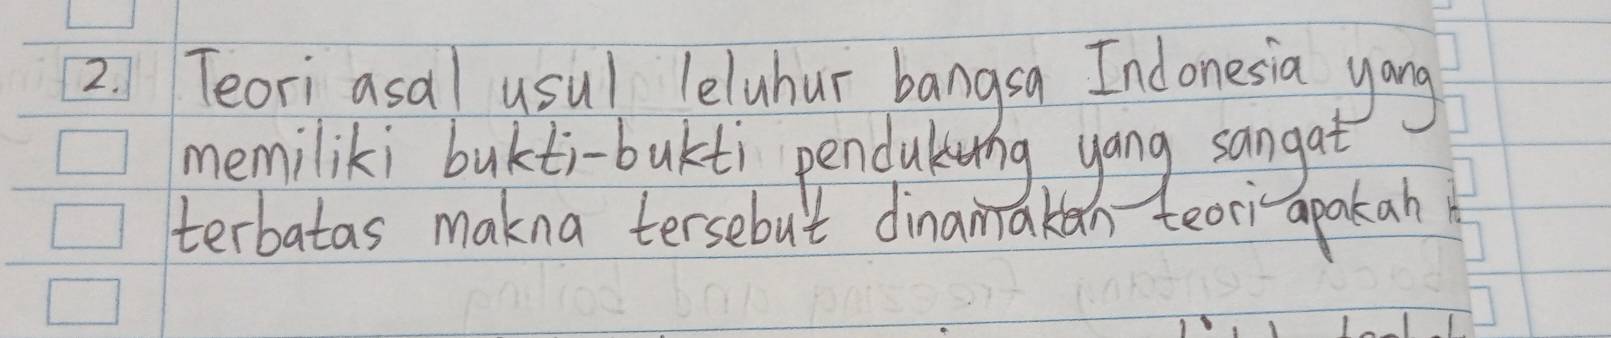 2. Teori asal usul leluhur bangsa Indonesia yang
memiliki bukti-bukti pendukung yang sangat
terbatas makna tersebut dinamakan teori apakah